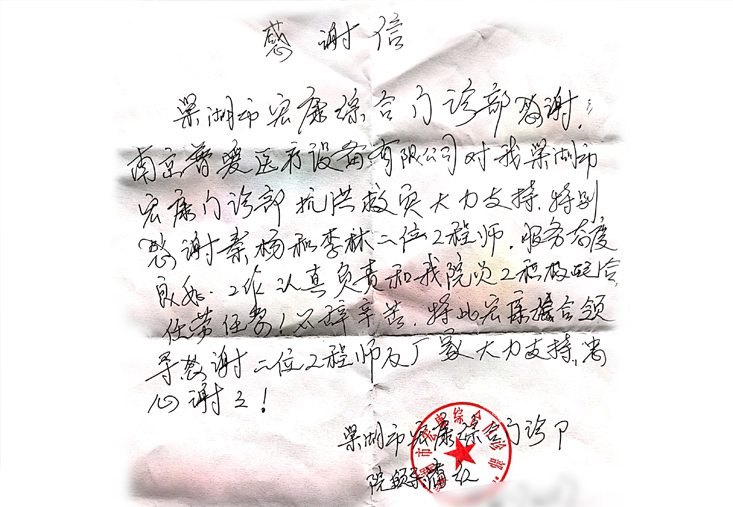 感谢信
巢湖市宏康综合门诊部感谢:
南京普爱医疗设备有限公司对我巢湖市
宏康门诊部抗洪救灾大力支持.特别
感谢秦杨和李林二位工程师.服务态度
良好.工作认真负责和我院员工积极配合
任劳任怨!不辞辛苦.特此宏康综合领
导感谢二位工程师及厂家大力支持,衷
心谢之!
巢湖市宏康综合门诊部
院领导